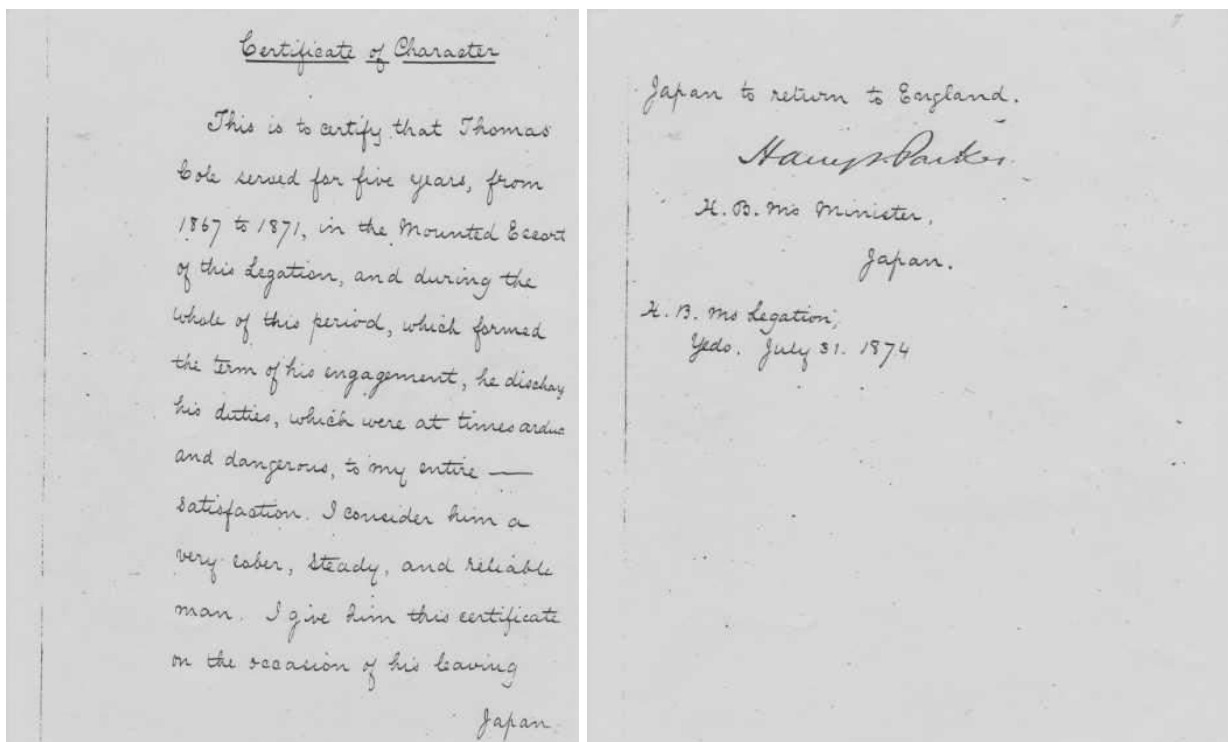 Certificate of Character
This is to certify that Thomas
Cole served for five years, from
1867 to 1871, in the Mounted Escort
of this Legation, and during the
whole of this period, which formed
the term of his engagement, he discharg
his duties, which were at times arduo
and dangerous, to my entire —
satisfaction. I consider him a
very sober, steady, and reliable
man. I give him this certificate
on the occasion of his leaving
Japan
Japan to return to England.
Harry S. Parkes
H. B. Ms Minister,
Japan.
H. B. Ms Legation,
Yedo. July 31. 1874